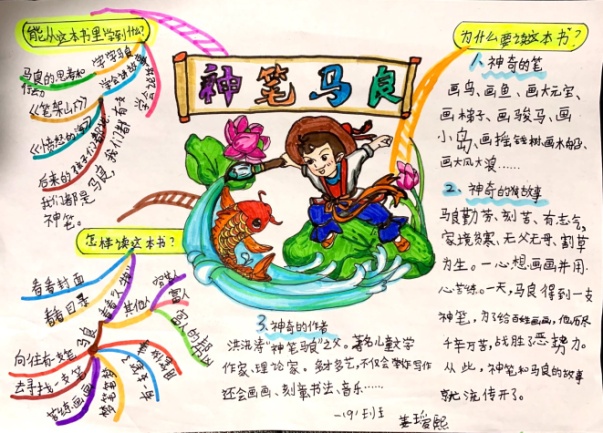 神笔马良
能从这本书里学到什么?
学习马良
马良的思考和
行动
《笔架山下》
《愤怒的海》
后来的孩子们都说:
我们都是马良,我们都有支
神笔。
怎样读这本书?
看看封面
看看目录
看看人物
马良
其他人
富人
向往有支笔
去寻找一支笔
苦练画画
为什么要读这本书?
1、神奇的笔
画鸟、画鱼、画大元宝、
画梯子、画骏马、画
小岛、画摇钱树、画木船、
画大风大浪……
2、神奇的故事
马良勤劳、刻苦、有志气,
家境贫寒、无父无母、割草
为生。一心想画画并用
心苦练。一天,马良得到一支
神笔,为了给百姓画画,他历尽
千辛万苦,战胜了恶势力。
从此,神笔和马良的故事
就流传开了。
3、神奇的作者
洪汛涛“神笔马良”之父。著名儿童文学
作家、理论家。多才多艺,不仅会写作
还会画画、刻章、书法、音乐……